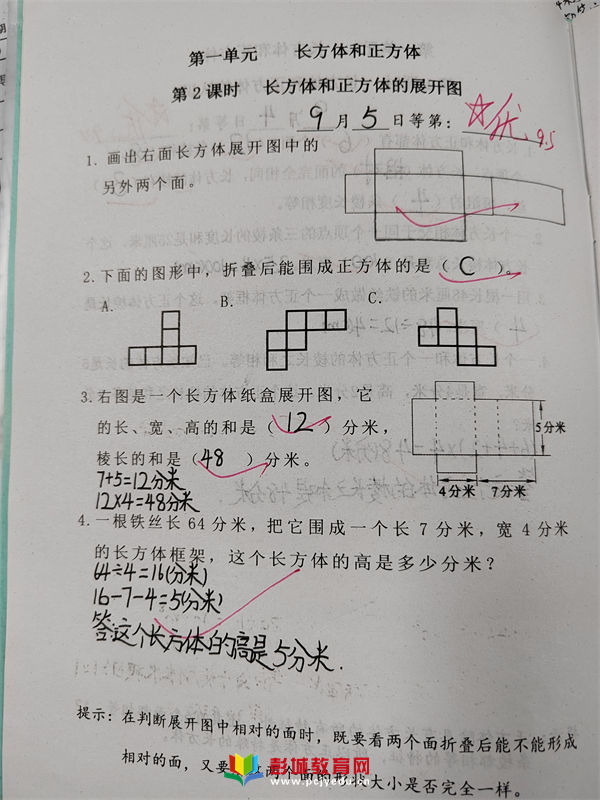 第一单元 长方体和正方体
第2课时 长方体和正方体的展开图
9月5日等第：优 9.5
1. 画出右面长方体展开图中的
另外两个面。
2. 下面的图形中，折叠后能围成正方体的是（ C ）。
A. B. C.
3. 右图是一个长方体纸盒展开图，它
的长、宽、高的和是（ 12 ）分米，
棱长的和是（ 48 ）分米。
5分米
4分米 7分米
7+5=12分米
12×4=48分米
4. 一根铁丝长 64 分米，把它围成一个长 7 分米，宽 4 分米
的长方体框架，这个长方体的高是多少分米？
64÷4=16(分米)
16-7-4=5(分米)
答:这个长方体的高是5分米.
提示：在判断展开图中相对的面时，既要看两个面折叠后能不能形成
相对的面，又要 两个面的形状大小是否完全一样。
彭城教育网
www.pcjyedu.cn